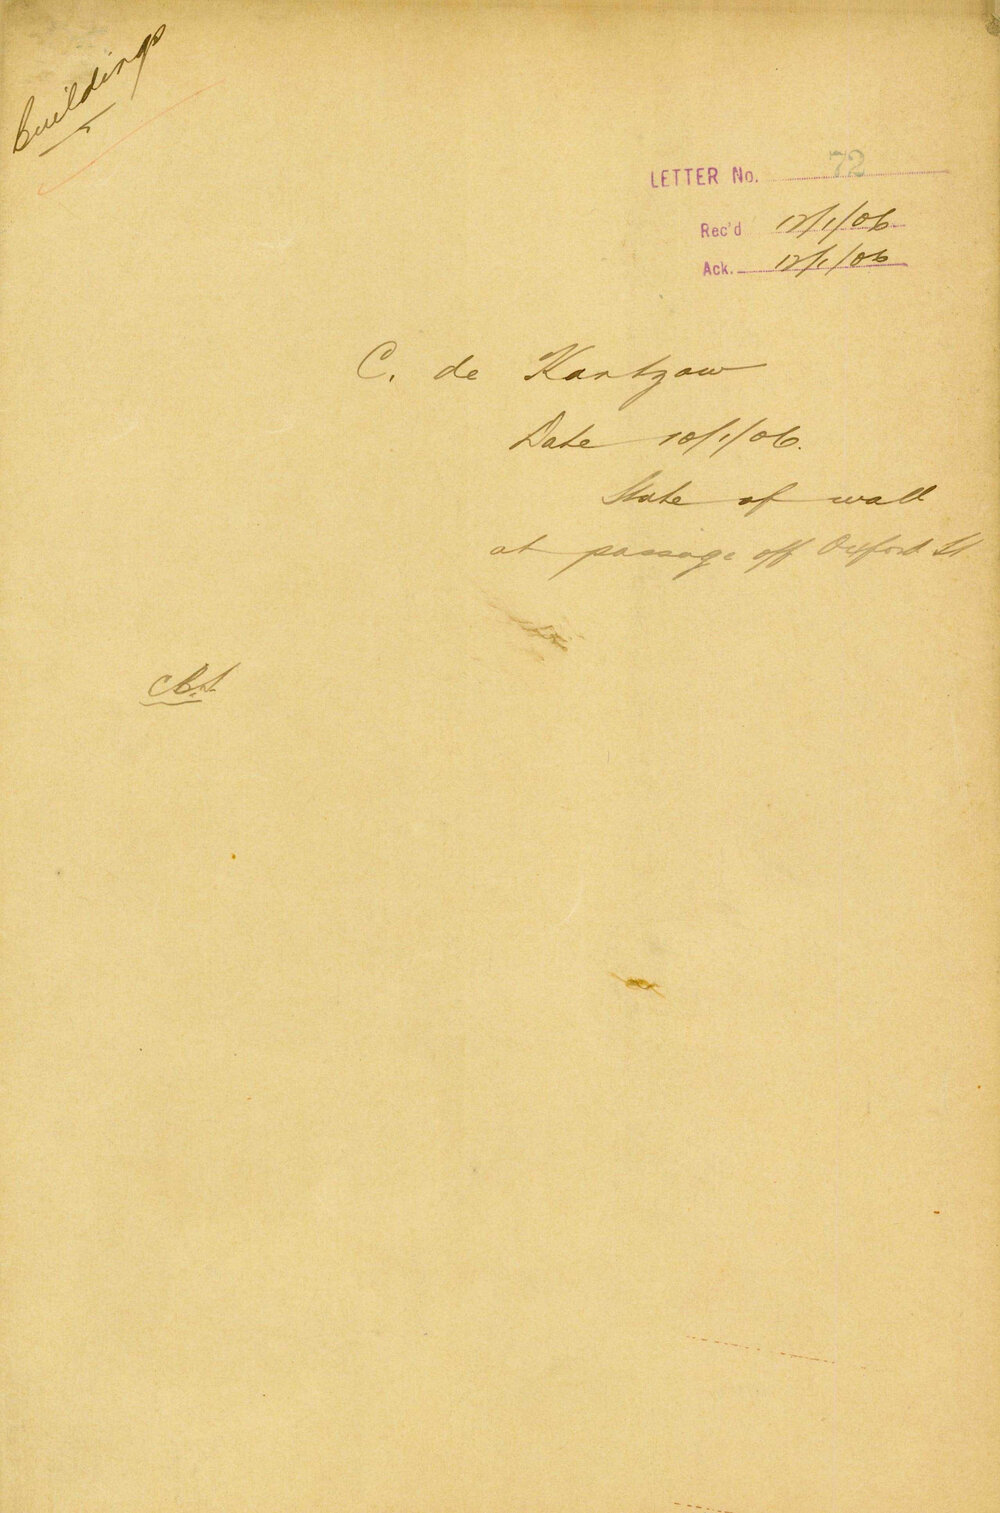 Buildings
LETTER No. 72
Rec'd 12/1/06
Ack. 12/1/06
C. de Kantzow
Date 10/1/06.
State of wall
at passage off Oxford St